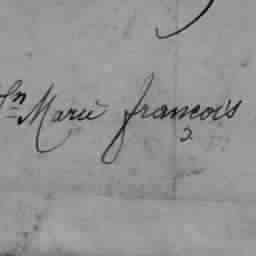 Jn Marie françois